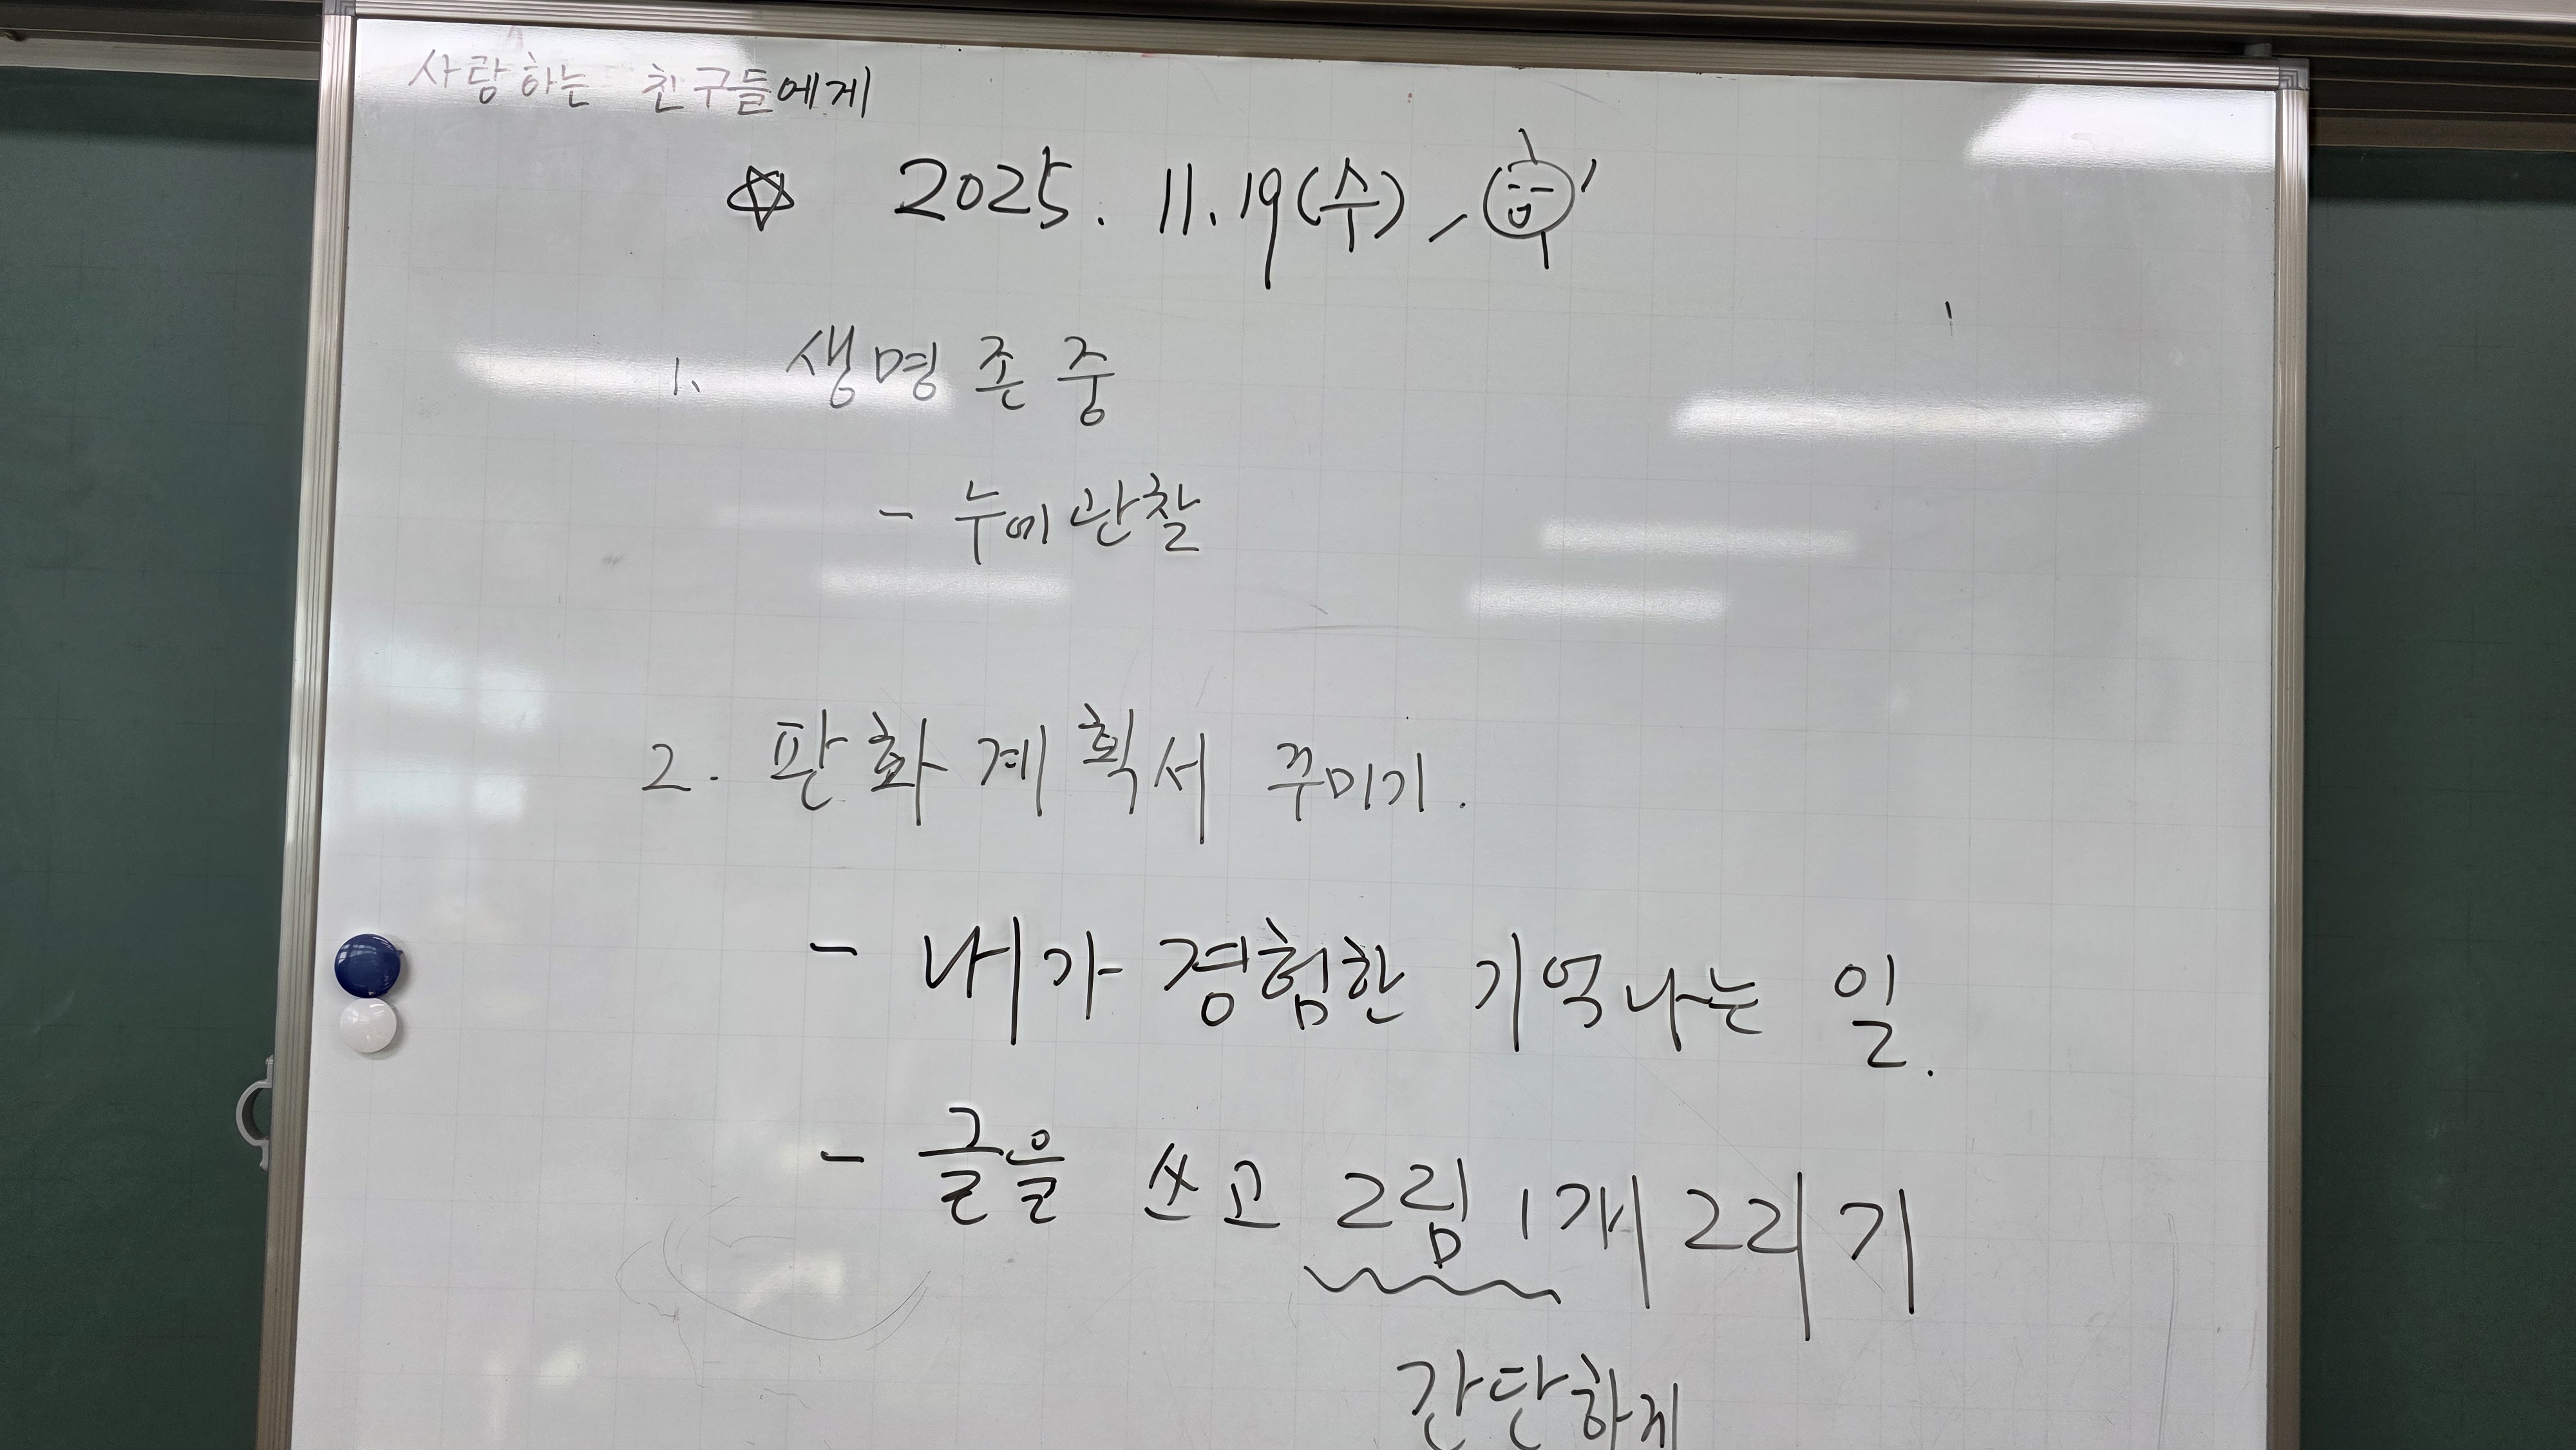 사랑하는 친구들에게
☆ 2025. 11. 19(수)
1. 생명존중
- 누에관찰
2. 판화계획서 꾸미기.
- 내가 경험한 기억나는 일.
- 글을 쓰고 그림 1개 그리기
간단하게